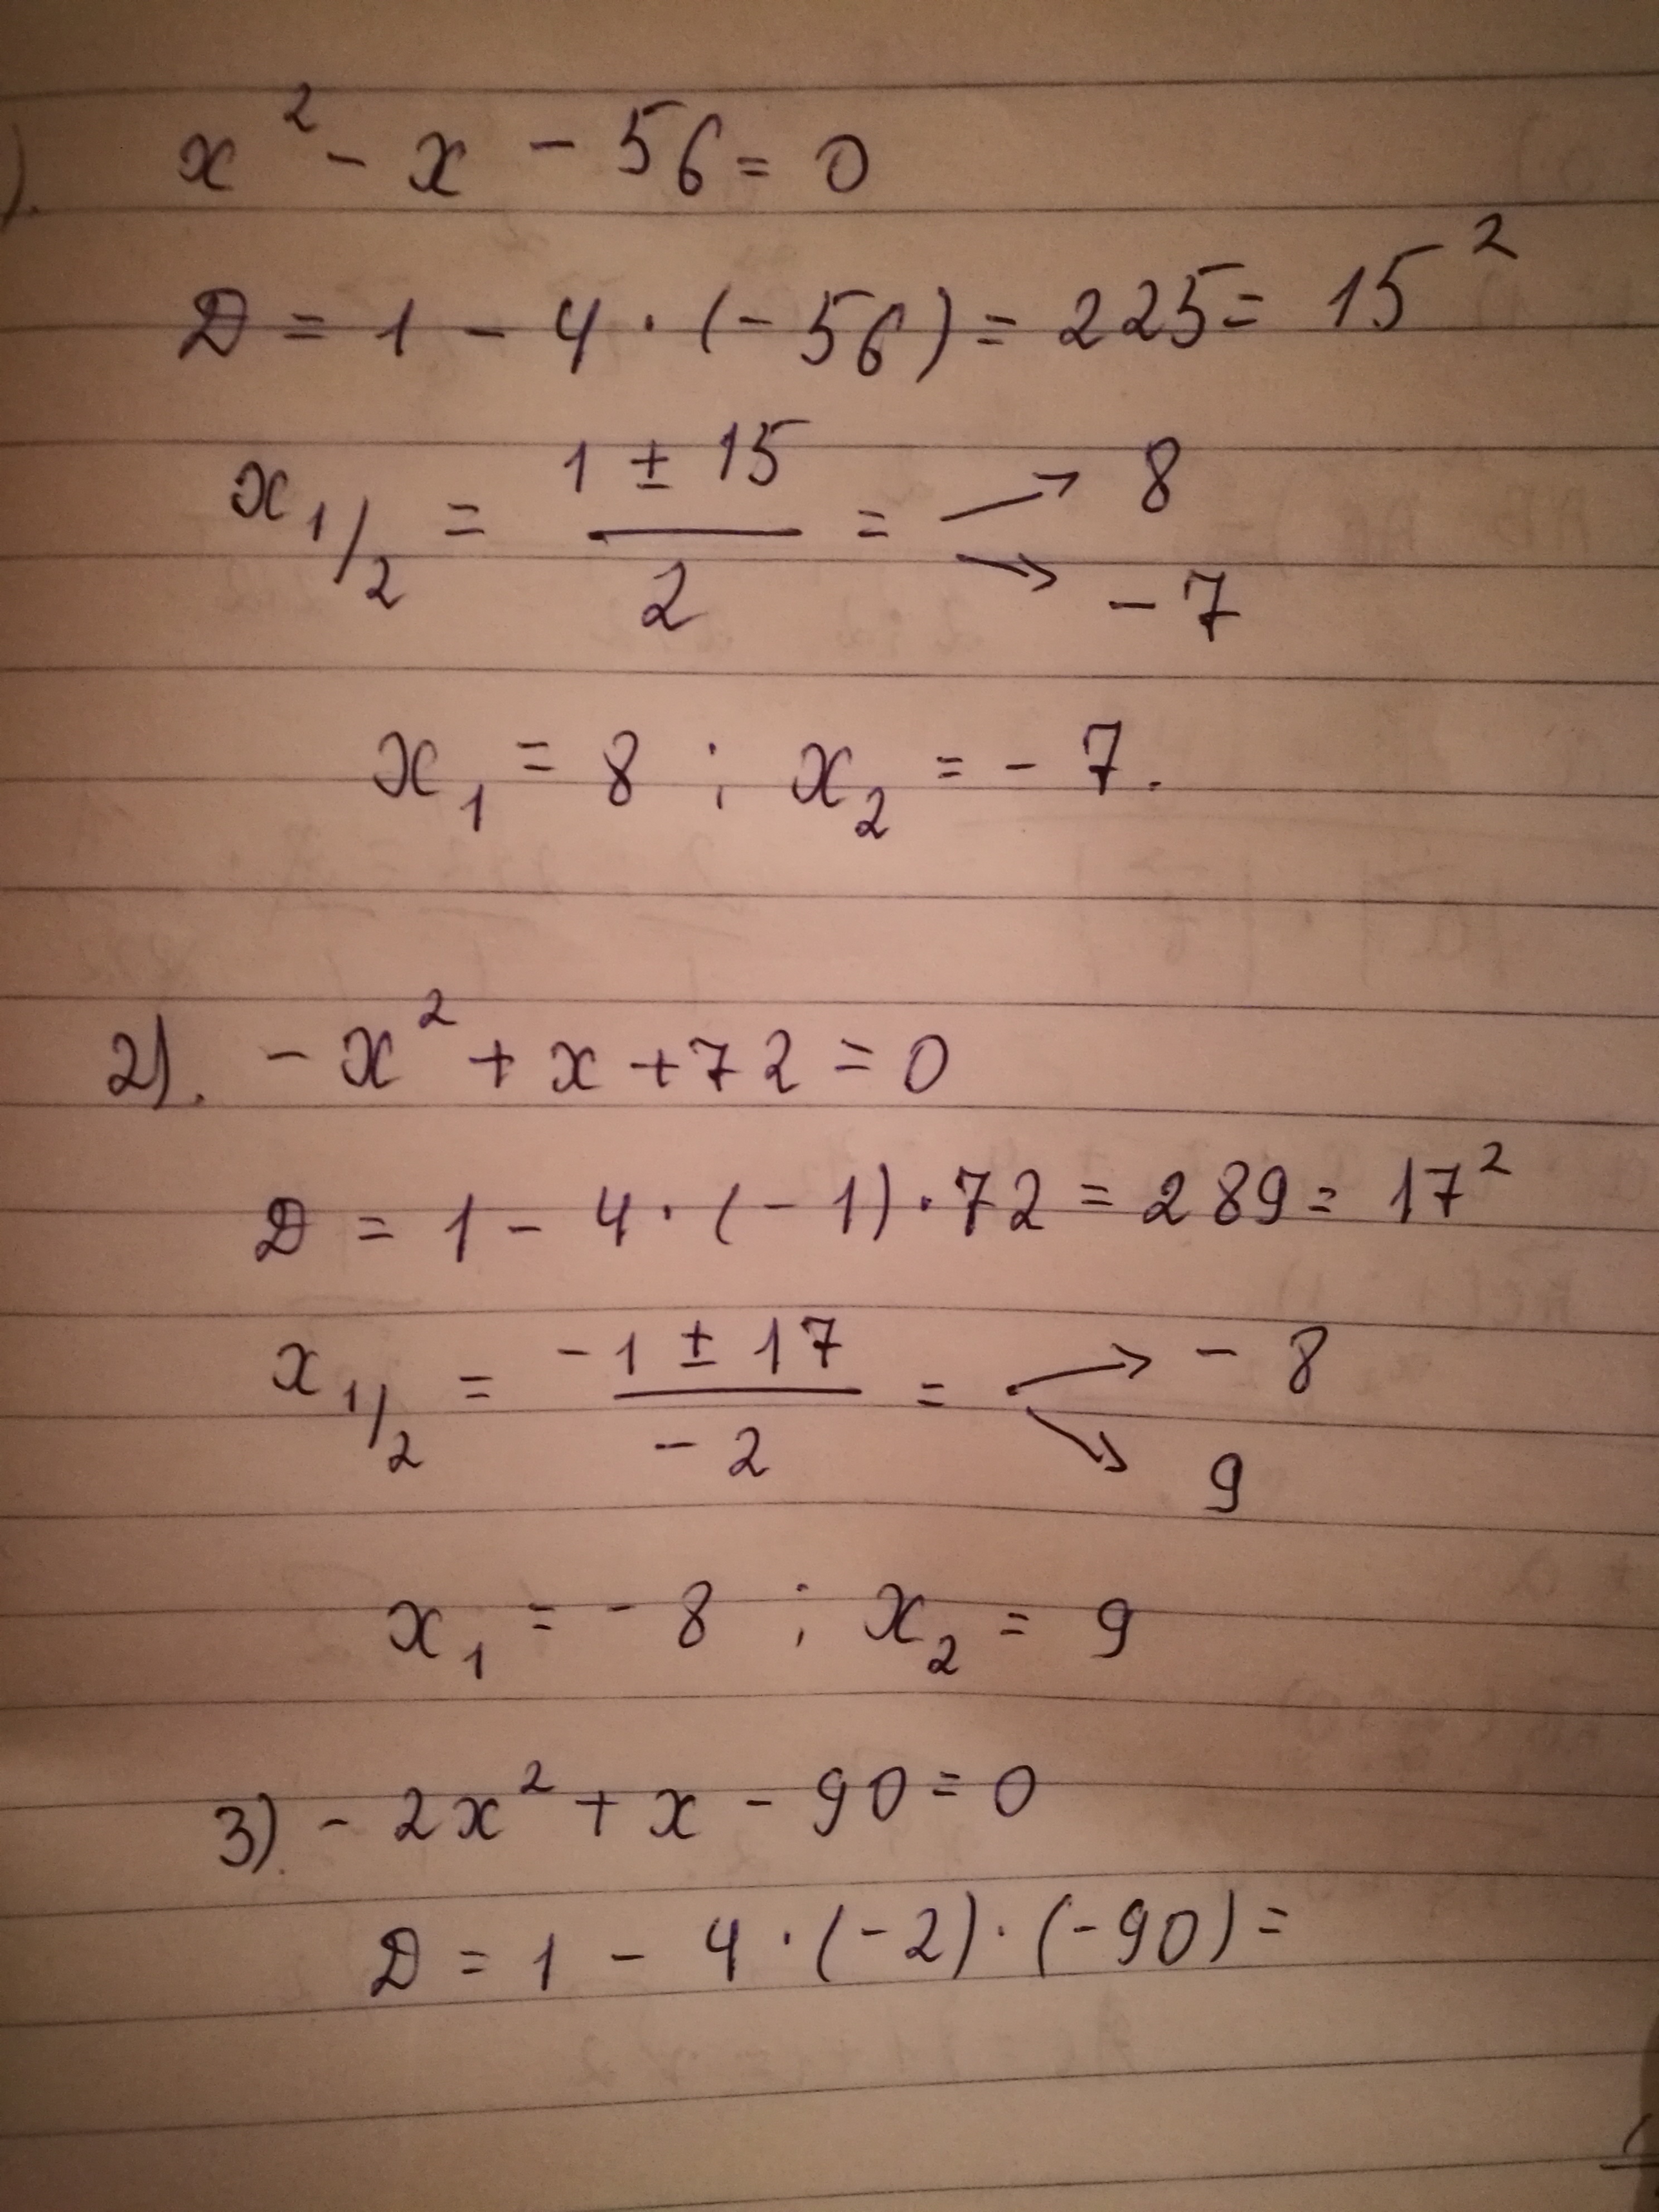 ). x² - x - 56 = 0
D = 1 - 4 · (-56) = 225 = 15²
x₁/₂ = (1 ± 15)/2 = → 8 → -7
x₁ = 8 ; x₂ = - 7.
2). - x² + x + 72 = 0
D = 1 - 4 · (-1) · 72 = 289 = 17²
x₁/₂ = (-1 ± 17)/(-2) = → - 8 → 9
x₁ = - 8 ; x₂ = 9
3) - 2x² + x - 90 = 0
D = 1 - 4 · (-2) · (-90) =